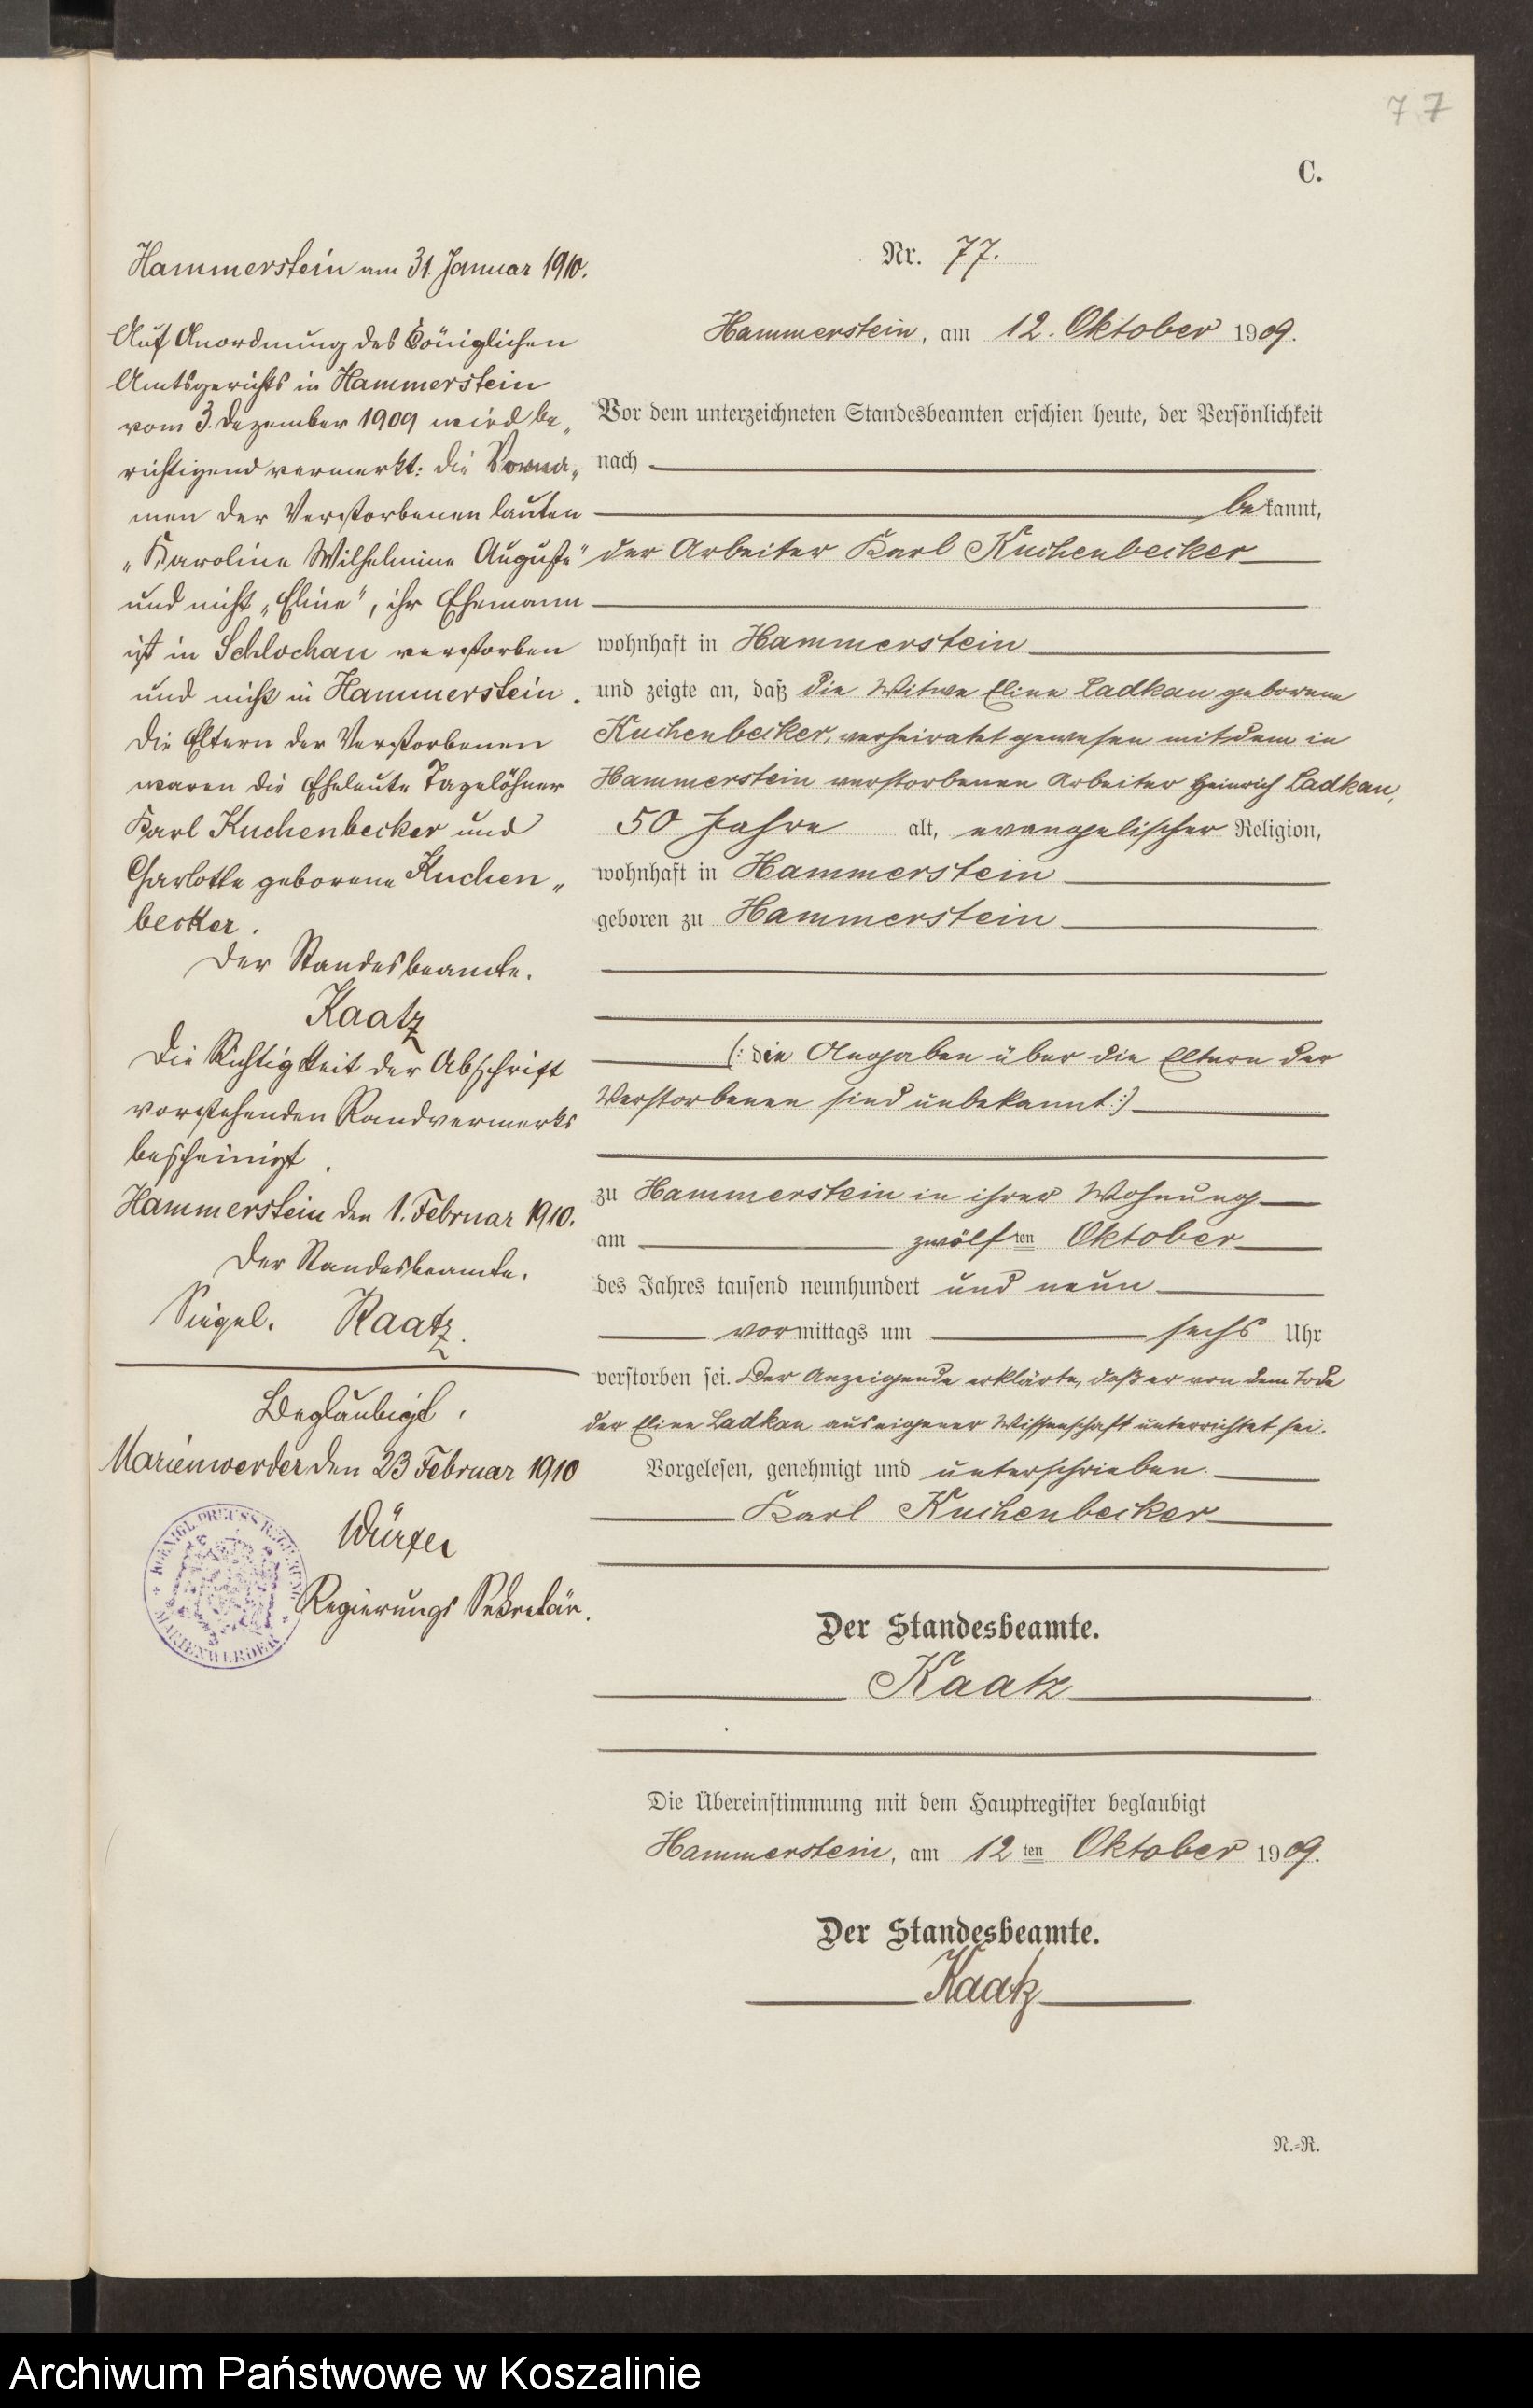 77
C.
Hammerstein am 31. Januar 1910.
Auf Anordnung des Königlichen
Amtsgerichts in Hammerstein
vom 3. Dezember 1909 wird be„
richtigend vermerkt: die Vorna„
men der Verstorbenen lauten
„Karoline Wilhelmine Auguste“
und nicht „Eline“, ihr Ehemann
ist in Schlochau verstorben
und nicht in Hammerstein.
Die Eltern der Verstorbenen
waren die Eheleute Tagelöhner
Karl Kuchenbecker und
Charlotte geborene Kuchen„
becker.
Der Standesbeamte.
Kaatz
Die Richtigkeit der Abschrift
vorstehenden Randvermerks
bescheinigt.
Hammerstein den 1. Februar 1910.
Der Standesbeamte.
Siegel. Kaatz.
Beglaubigt.
Marienwerder den 23 Februar 1910
Regierungs Sekretär.
KOENIGL. PREUSS. REGIERUNG
MARIENWERDER
Nr. 77.
Hammerstein, am 12. Oktober 1909.
Vor dem unterzeichneten Standesbeamten erschien heute, der Persönlichkeit
nach
bekannt,
der Arbeiter Karl Kuchenbecker
wohnhaft in Hammerstein
und zeigte an, daß die Witwe Eline Ladkau geborene
Kuchenbecker, verheiratet gewesen mit dem in
Hammerstein verstorbenen Arbeiter Heinrich Ladkau,
50 Jahre alt, evangelischer Religion,
wohnhaft in Hammerstein
geboren zu Hammerstein
(: die Angaben über die Eltern der
Verstorbenen sind unbekannt :)
zu Hammerstein in ihrer Wohnung
am zwölften Oktober
des Jahres tausend neunhundert und neun
vormittags um sechs Uhr
verstorben sei. Der Anzeigende erklärte, daß er von dem Tode
der Eline Ladkau aus eigener Wissenschaft unterrichtet sei.
Vorgelesen, genehmigt und unterschrieben.
Karl Kuchenbecker
Der Standesbeamte.
Kaatz
Die Übereinstimmung mit dem Hauptregister beglaubigt
Hammerstein, am 12ten Oktober 1909.
Der Standesbeamte.
Kaatz
N.=R.
Archiwum Państwowe w Koszalinie